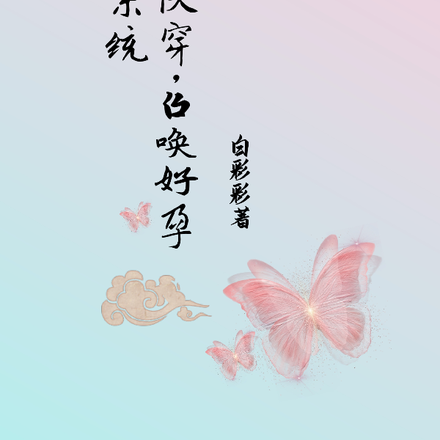 快穿，召唤好孕
系统
白彩彩著